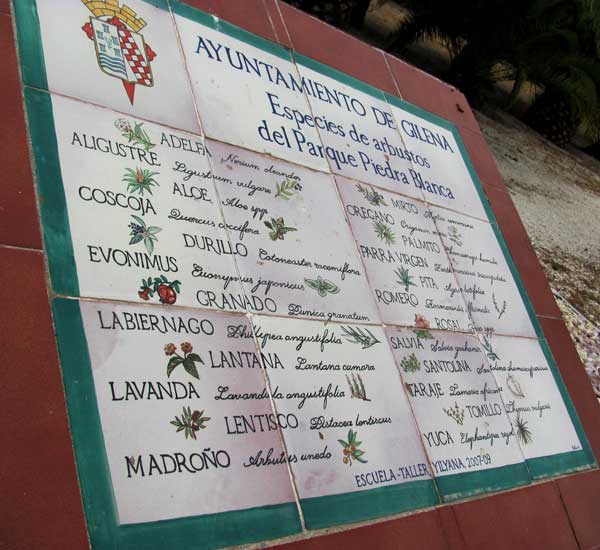 AYUNTAMIENTO DE GILENA
Especies de arbustos
del Parque Piedra Blanca
ADELFA Nerium oleander
ALIGUSTRE Ligustrum vulgare
ALOE Aloe spp
COSCOJA Quercus coccifera
DURILLO Cotoneaster racemiflora
EVONIMUS Euonymus japonicus
GRANADO Punica granatum
LABIERNAGO Phillyrea angustifolia
LANTANA Lantana camara
LAVANDA Lavandula angustifolia
LENTISCO Pistacea lentiscus
MADROÑO Arbutus unedo
MIRTO Myrtus communis
OREGANO Origanum
PALMITO Chamaerops humilis
PARRA VIRGEN
PITA
ROMERO Rosmarinus
ROSAL Rosa spp
SALVIA Salvia grahamii
SANTOLINA Santolina
TARAJE Tamarix africana
TOMILLO Thymus vulgaris
YUCA Elephantipes
ESCUELA-TALLER YILYANA 2007-09